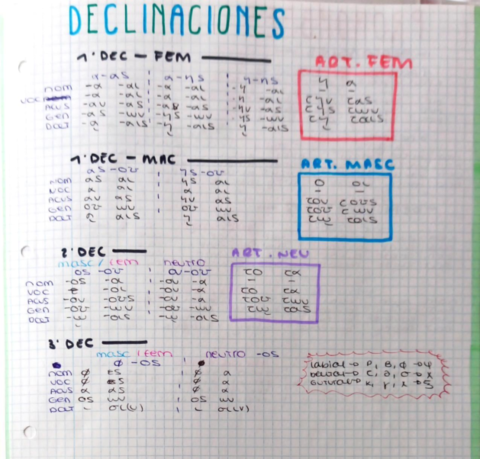 DECLINACIONES
1ª DEC - FEM
ART. FEM
α-ας α-ης η-ης
NOM -α -αι -α -αι -η -αι η α
VOC -α -αι -α -αι -η -αι
ACUS -αν -ας -αν -ας -ην -ας την τας
GEN -ας -ων -ης -ων -ης -ων της των
DAT -ᾳ -αις -ῃ -αις -ῃ -αις τῃ ταις
1ª DEC - MAC
ART. MASC
ας-ου ης-ου
NOM ας αι ης αι ο οι
VOC α αι α αι
ACUS αν ας ην ας τον τους
GEN ου ων ου ων του των
DAT ᾳ αις ῃ αις τῳ τοις
2ª DEC
ART. NEU
masc/fem neutro
ος-ου ον-ου
NOM -ος -οι -ον -α το τα
VOC -ε -οι -ον -α
ACUS -ον -ους -ον -α το τα
GEN -ου -ων -ου -ων του των
DAT -ῳ -οις -ῳ -οις τῳ τοις
3ª DEC
masc/fem neutro -ος
φ -ος
NOM φ ες φ α
VOC φ ες φ α
ACUS α ας φ α
GEN ος ων ος ων
DAT ι σι(ν) ι σι(ν)
labial → π, β, φ → ψ
dental → τ, δ, θ → σ
gutural → κ, γ, χ → ξ